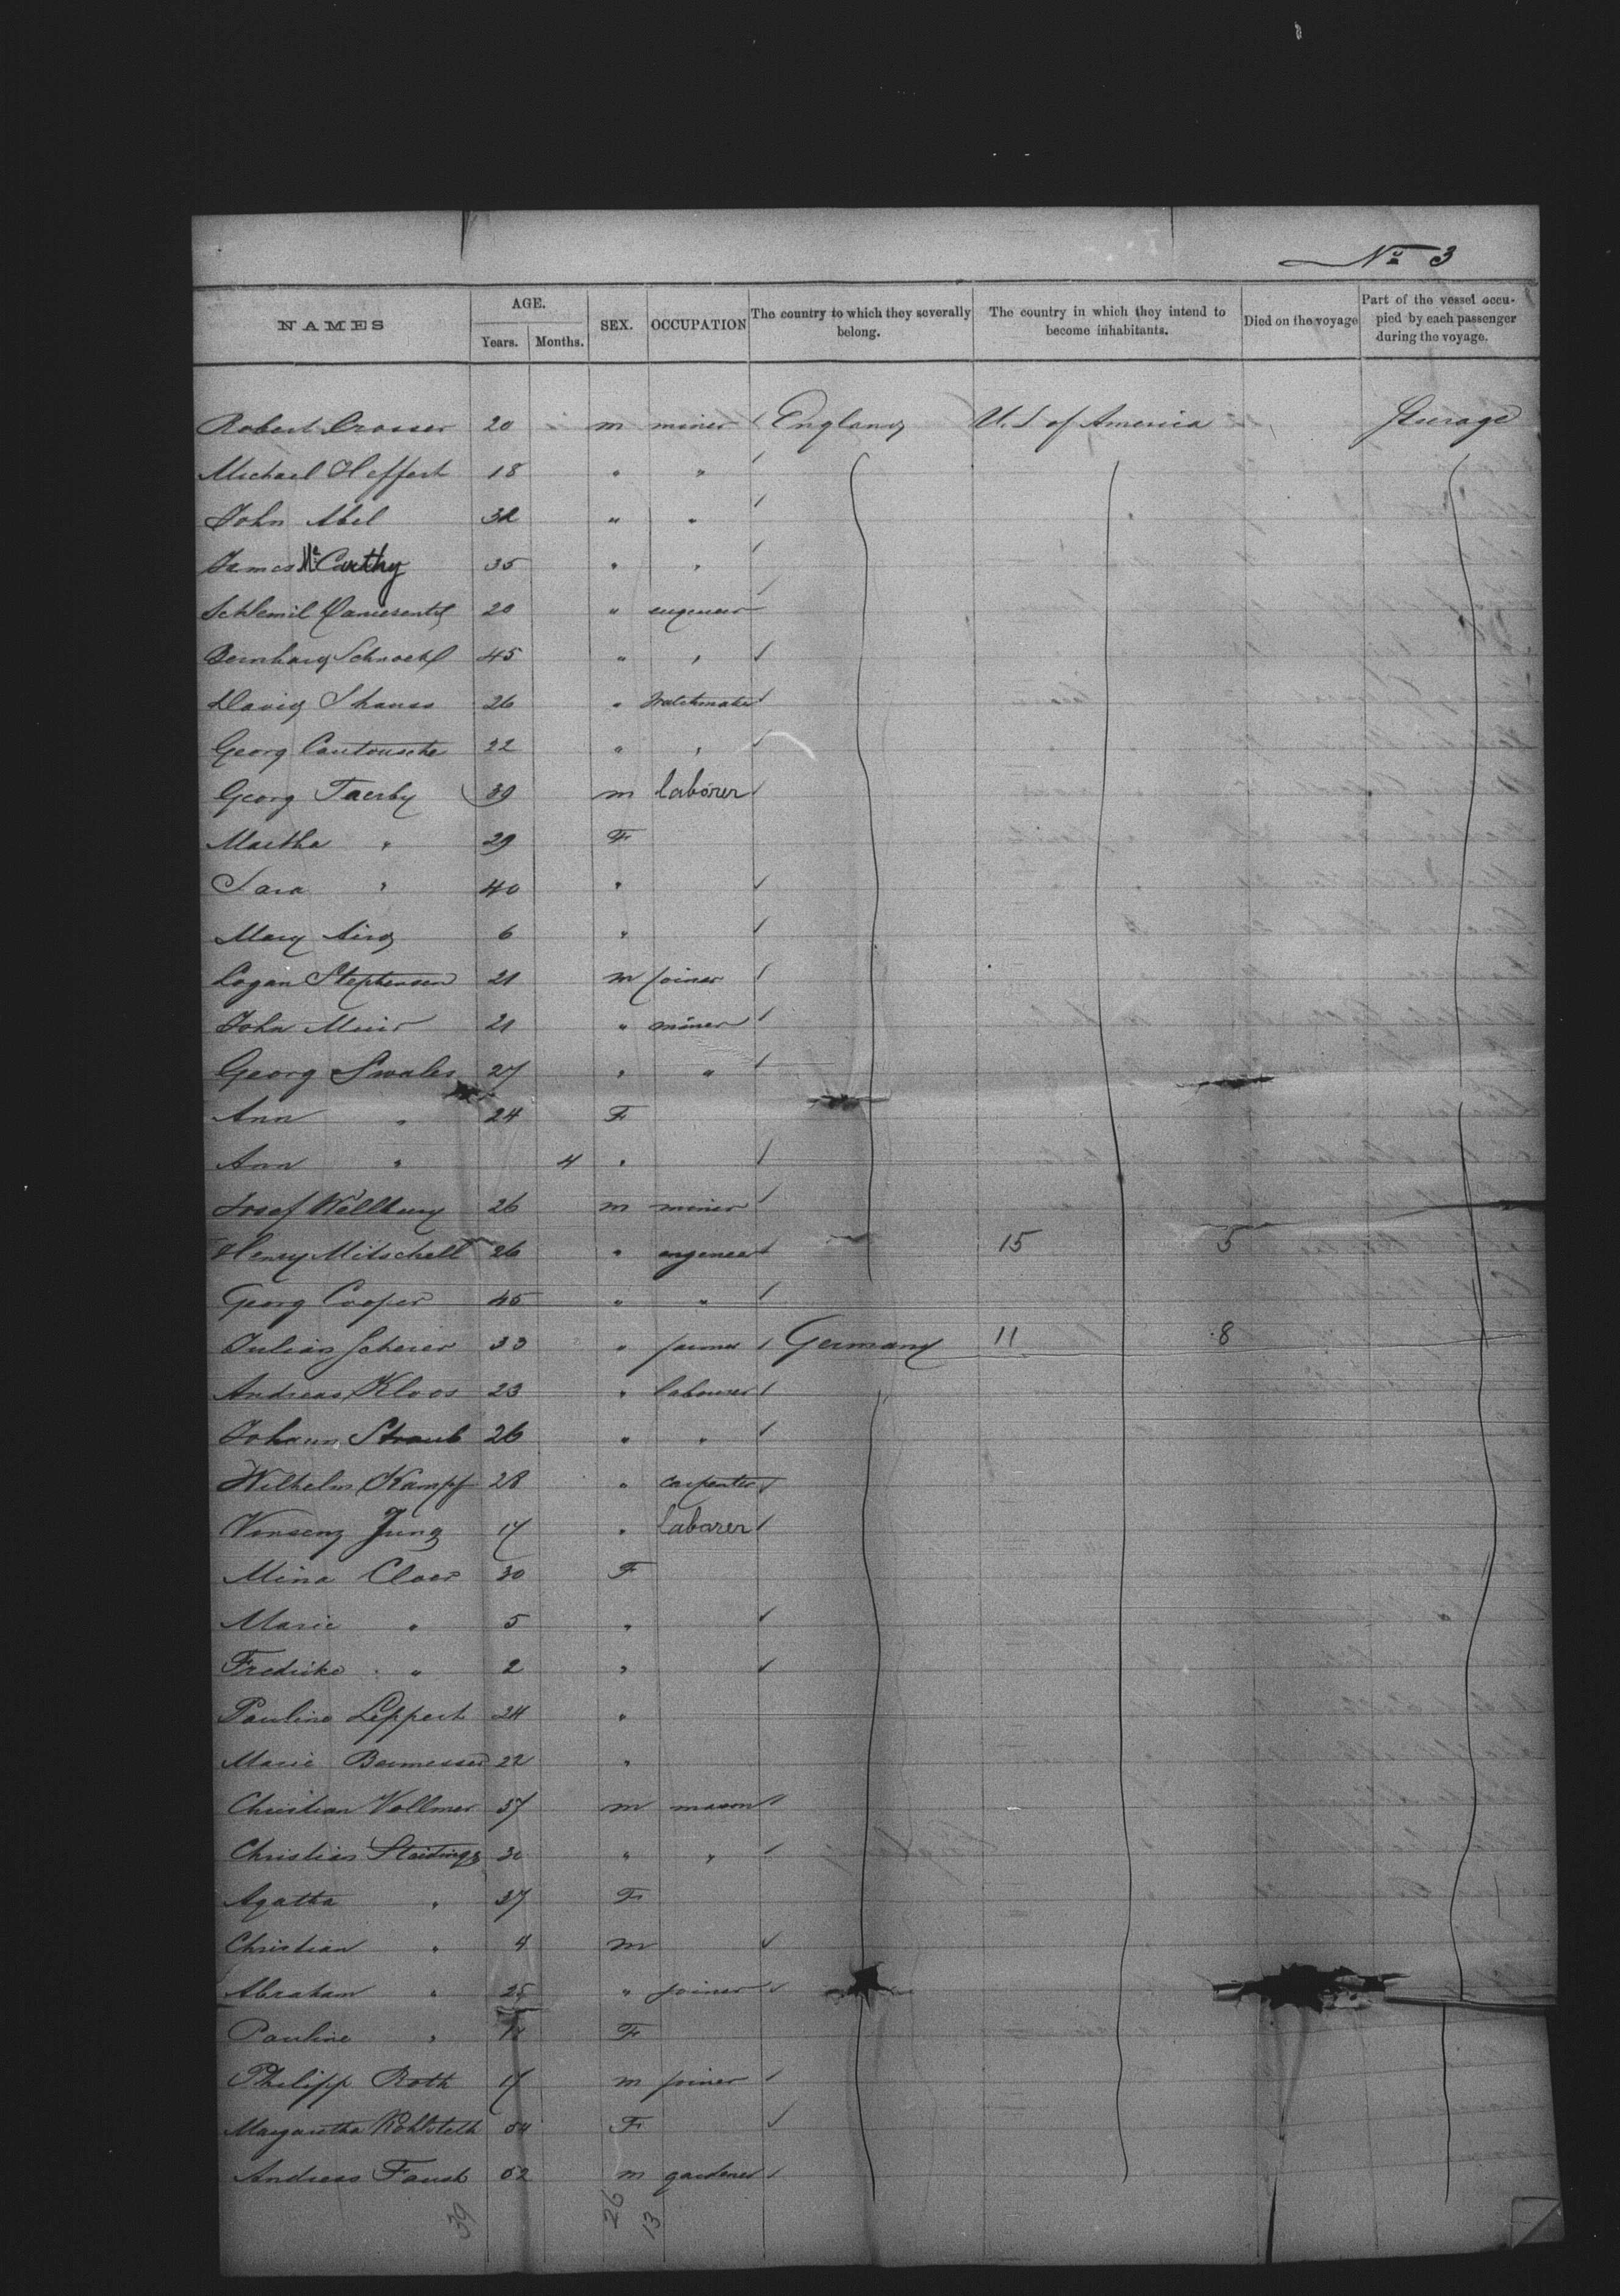 No 3
NAMES AGE. Years. Months. SEX. OCCUPATION The country to which they severally belong. The country in which they intend to become inhabitants. Died on the voyage Part of the vessel occupied by each passenger during the voyage.
Robert Crosser 20 m miner England U. S of America Steerage
Michael Heffert 18 " "
John Abel 32 " "
James McCarthy 35 " "
Schlemil 20 " engeneer
Bernhard 45 " "
David Shauss 26 " Watchmaker
Georg 22 " "
Georg Taerby 39 m laborer
Martha " 29 F
Sara " 40 "
Mary Aird 6 "
Logan Stephenson 21 m joiner
John Muir 21 " miner
Georg Swales 27 " "
Ann " 24 F
Ann " 4 "
Josef 26 m miner
Henry Mitschell 26 " engeneer 15 5
Georg Cooper 45 " "
Julian Scherer 33 " farmer Germany 11 8
Andreas Kloos 23 " labourer
Johann Straub 26 " "
Wilhelm Kampf 28 " carpenter
Vinsenz Jung 17 " laborer
Mina Cloer 30 F
Marie " 5 "
Fredicke " 2 "
Pauline Leppert 24 "
Marie 22 "
Christian Vollmer 37 m mason
Christian 30 " "
Agatha " 37 F
Christian " 4 m
Abraham " 25 " joiner
Pauline " F
Philipp Roth 17 m joiner
Margaretha 54 F
Andreas Faust 52 m gardener
39 26 13